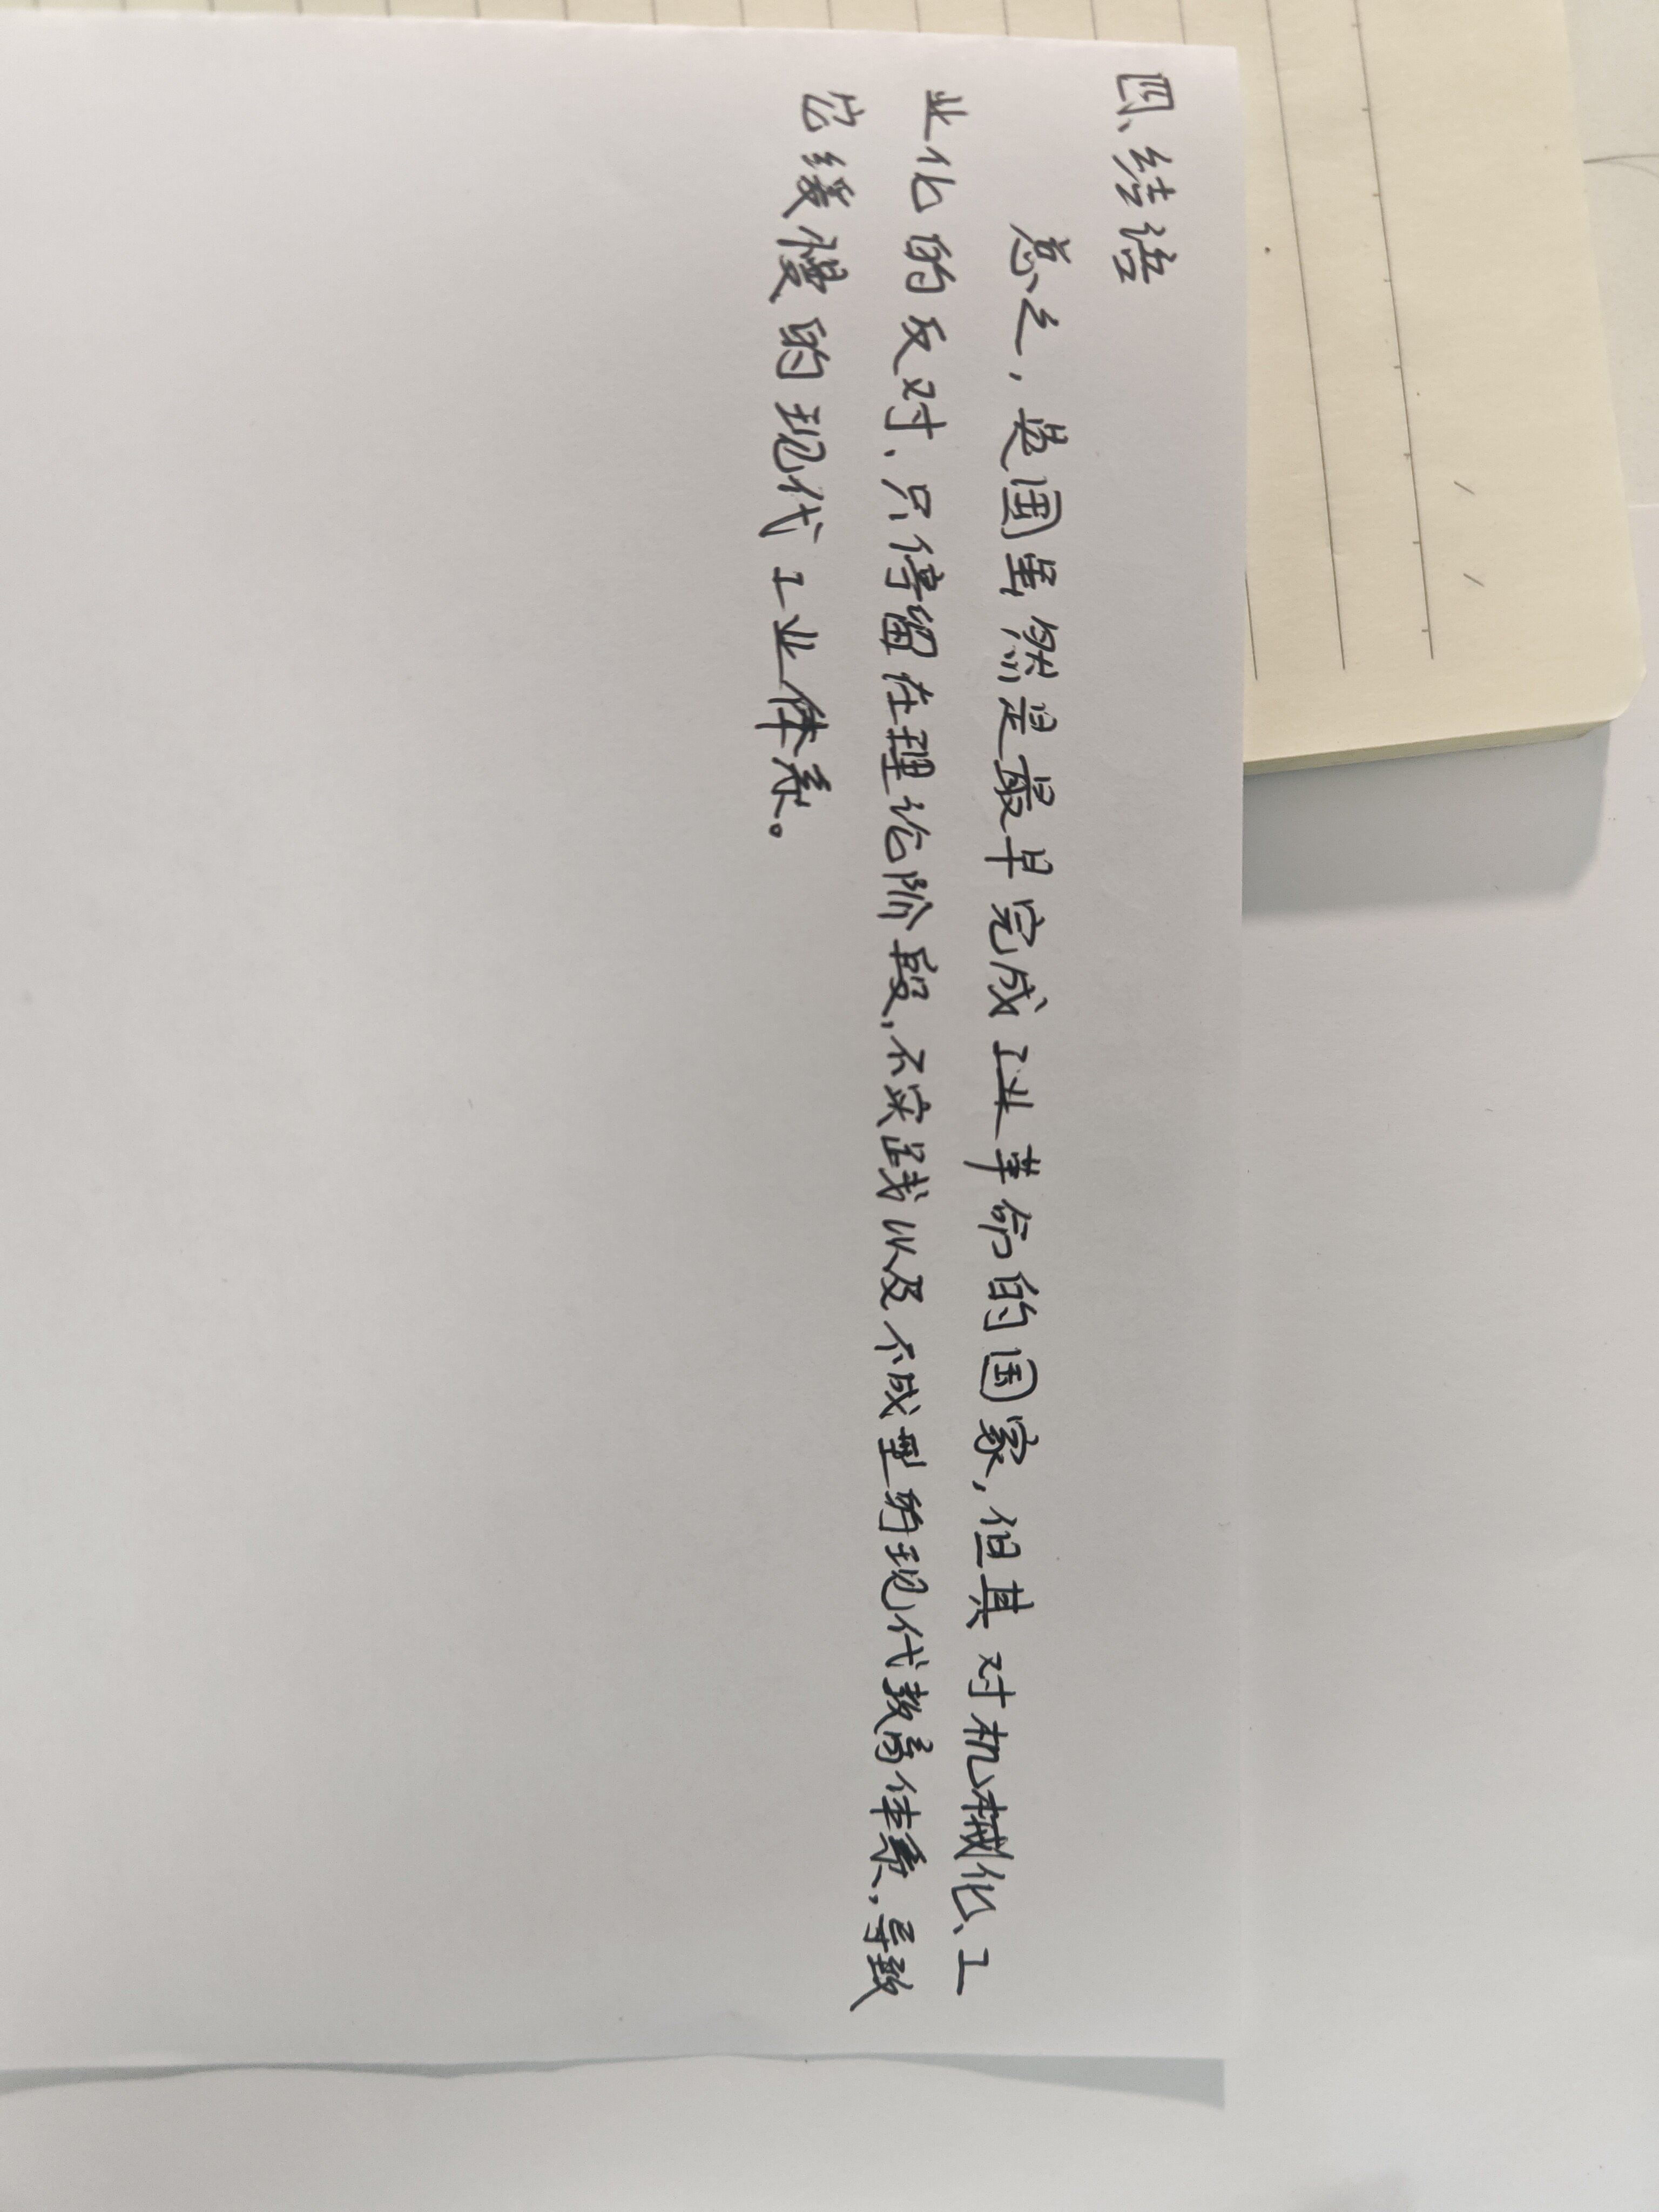 四、结语
总之，英国虽然是最早完成工业革命的国家，但其对机械化、工
业化的反对、只停留在理论阶段，不实践以及不成型的现代教育体系，导致
它缓慢的现代工业体系。